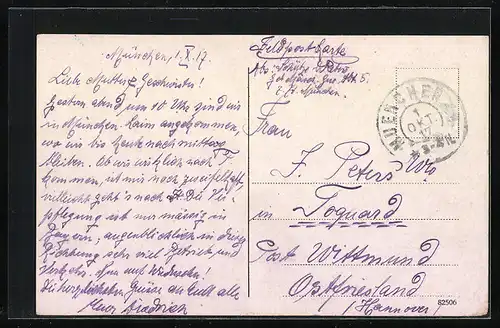 München, 1. X. 17.
Liebe Mutter u. Geschwister!
Gestern abend um 10 Uhr sind wir
in München angekommen,
wo wir bis heute nachmittag
bleiben. Ob wir wirklich nach F.
kommen, ist mir noch zweifelhaft,
vielleicht geht's nach Die Ver-
pflegung ist nur mässig in
Bayern, augenblicklich in
Richtung sehr viel Betrieb und
Verkehr. Nun auf Wiedersehn!
Die herzlichsten Grüsse an Euch alle
Euer Diedrich
Feldpostkarte
Abs. Schütze Peters
München.
Frau
J. Peters Ww.
in Toquard
Post Wittmund
Ostfriesland
(Hannover)
MUENCHEN
1
OKT.
17
82506